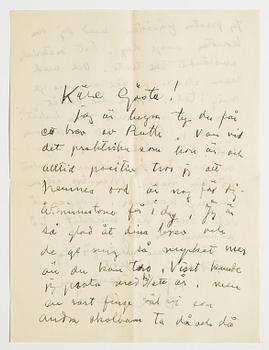 Käre Gösta!
Jag är lugn ty du får
ett brev av Ruth. Van vid
det praktiska som hon är och
alltid positiv tror jag att
hennes ord är nog för dig
åtminstone för i dag. Jag är
så glad åt dina brev och
de ge mig så mycket mer
än du kan tro. Visst kunde
jag prata med det är, men
en rast finge väl vi som
andra skolbarn ta då och då